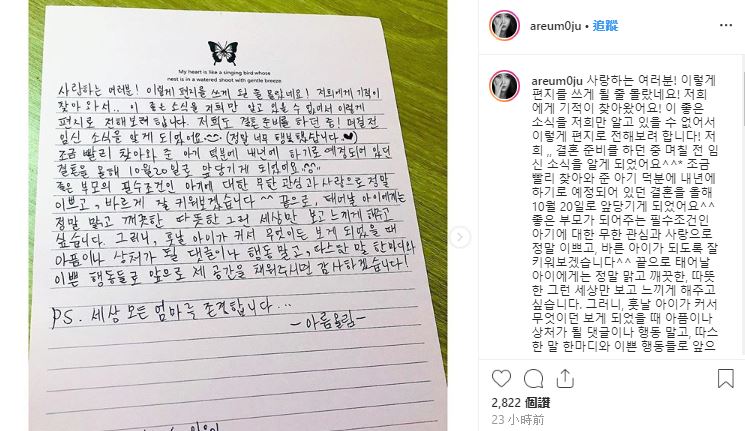 My heart is like a singing bird whose
nest is in a watered shoot with gentle breeze
사랑하는 여러분! 이렇게 편지를 쓰게 될 줄 몰랐네요! 저희에게 기적이
찾아 와서.. 이 좋은 소식을 저희만 알고 있을 수 없어서 이렇게
편지로 전해보려 합니다. 저희도 결혼 준비를 하던 중! 며칠전
임신 소식을 알게 되었어요 (정말 너무 행복했답니다.♥)
조금 빨리 찾아와 준 아기 덕분에 내년에 하기로 예정되어 있던
결혼을 올해 10월20일로 앞당기게 되었어요
좋은 부모의 필수조건인 아기에 대한 무한 관심과 사랑으로 정말
이쁘고, 바르게 잘 키워보겠습니다^^ 끝으로, 태어날 아이에게는
정말 맑고 깨끗한 따뜻한 그런 세상만 보고 느끼게 해주고
싶습니다. 그러니, 훗날 아이가 커서 무엇이든 보게 되었을 때
아픔이나 상처가 될 댓글이나 행동 말고, 따스한 말 한마디와
이쁜 행동들로 앞으로 세 공간을 채워주시면 감사하겠습니다!
PS. 세상 모든 엄마를 존경합니다...
-아름올림-
areum0ju • 追蹤
areum0ju 사랑하는 여러분! 이렇게
편지를 쓰게 될 줄 몰랐네요! 저희
에게 기적이 찾아왔어요! 이 좋은
소식을 저희만 알고 있을 수 없어서
이렇게 편지로 전해보려 합니다! 저
희 ,, 결혼 준비를 하던 중 며칠 전 임
신 소식을 알게 되었어요^^* 조금
빨리 찾아와 준 아기 덕분에 내년에
하기로 예정되어 있던 결혼을 올해
10월 20일로 앞당기게 되었어요^^
좋은 부모가 되어주는 필수조건인
아기에 대한 무한 관심과 사랑으로
정말 이쁘고, 바른 아이가 되도록 잘
키워보겠습니다^^ 끝으로 태어날
아이에게는 정말 맑고 깨끗한, 따뜻
한 그런 세상만 보고 느끼게 해주고
싶습니다. 그러니, 훗날 아이가 커서
무엇이던 보게 되었을 때 아픔이나
상처가 될 댓글이나 행동 말고, 따스
한 말 한마디와 이쁜 행동들로 앞으
2,822 個讚
23 小時前